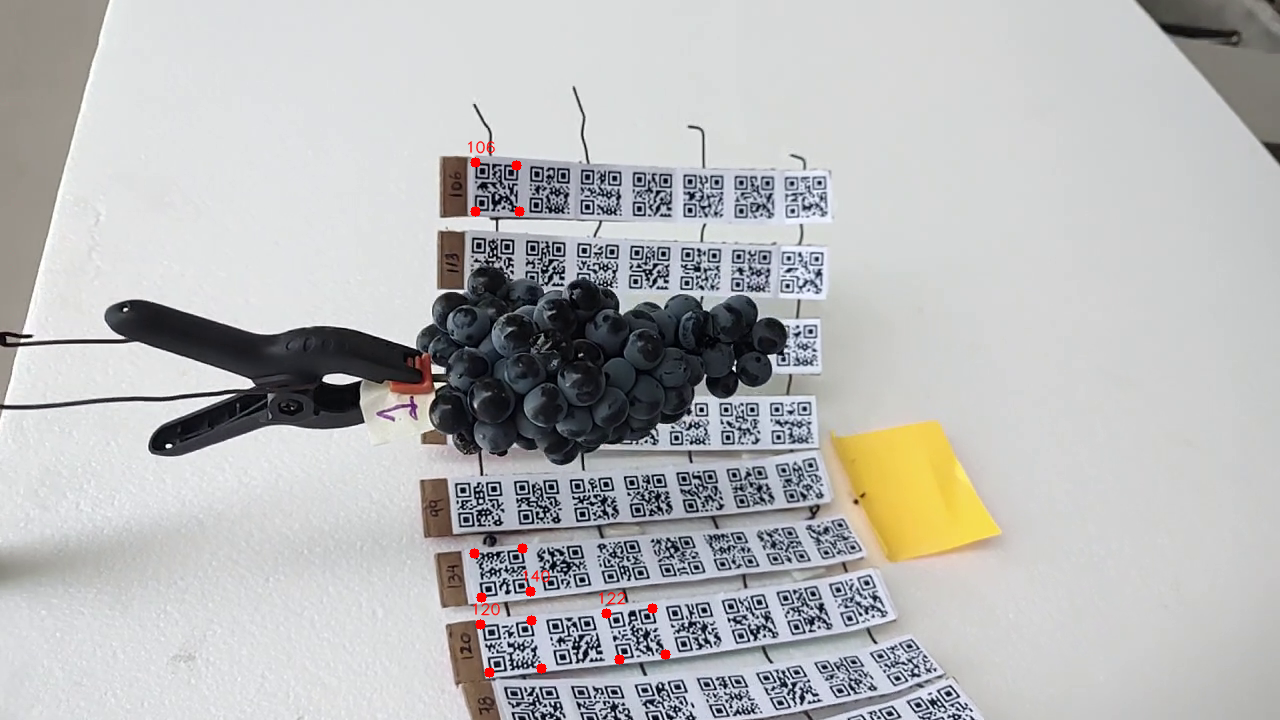 106
106
113
1
99
134
140
122
120
120
78